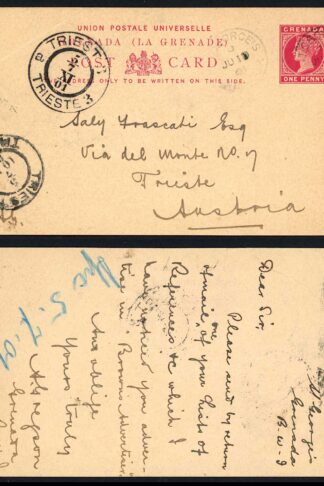 UNION POSTALE UNIVERSELLE
GRENADA (LA GRENADE)
POST CARD
THE ADDRESS ONLY TO BE WRITTEN ON THIS SIDE.
GRENADA
ONE PENNY
TRIESTE
XI
01
TRIESTE 3
TRIESTE
Saly Frascati Esq
Via del Monte No. 17
Trieste
Austria
St George's
Grenada
B.W.I
Dear Sir,
Please send by return
of mail, one of your Lists of
References &c which I
have noticed you adver-
tise in Browns Advertiser,
And oblige
Yours truly
Grenada
5.7.01